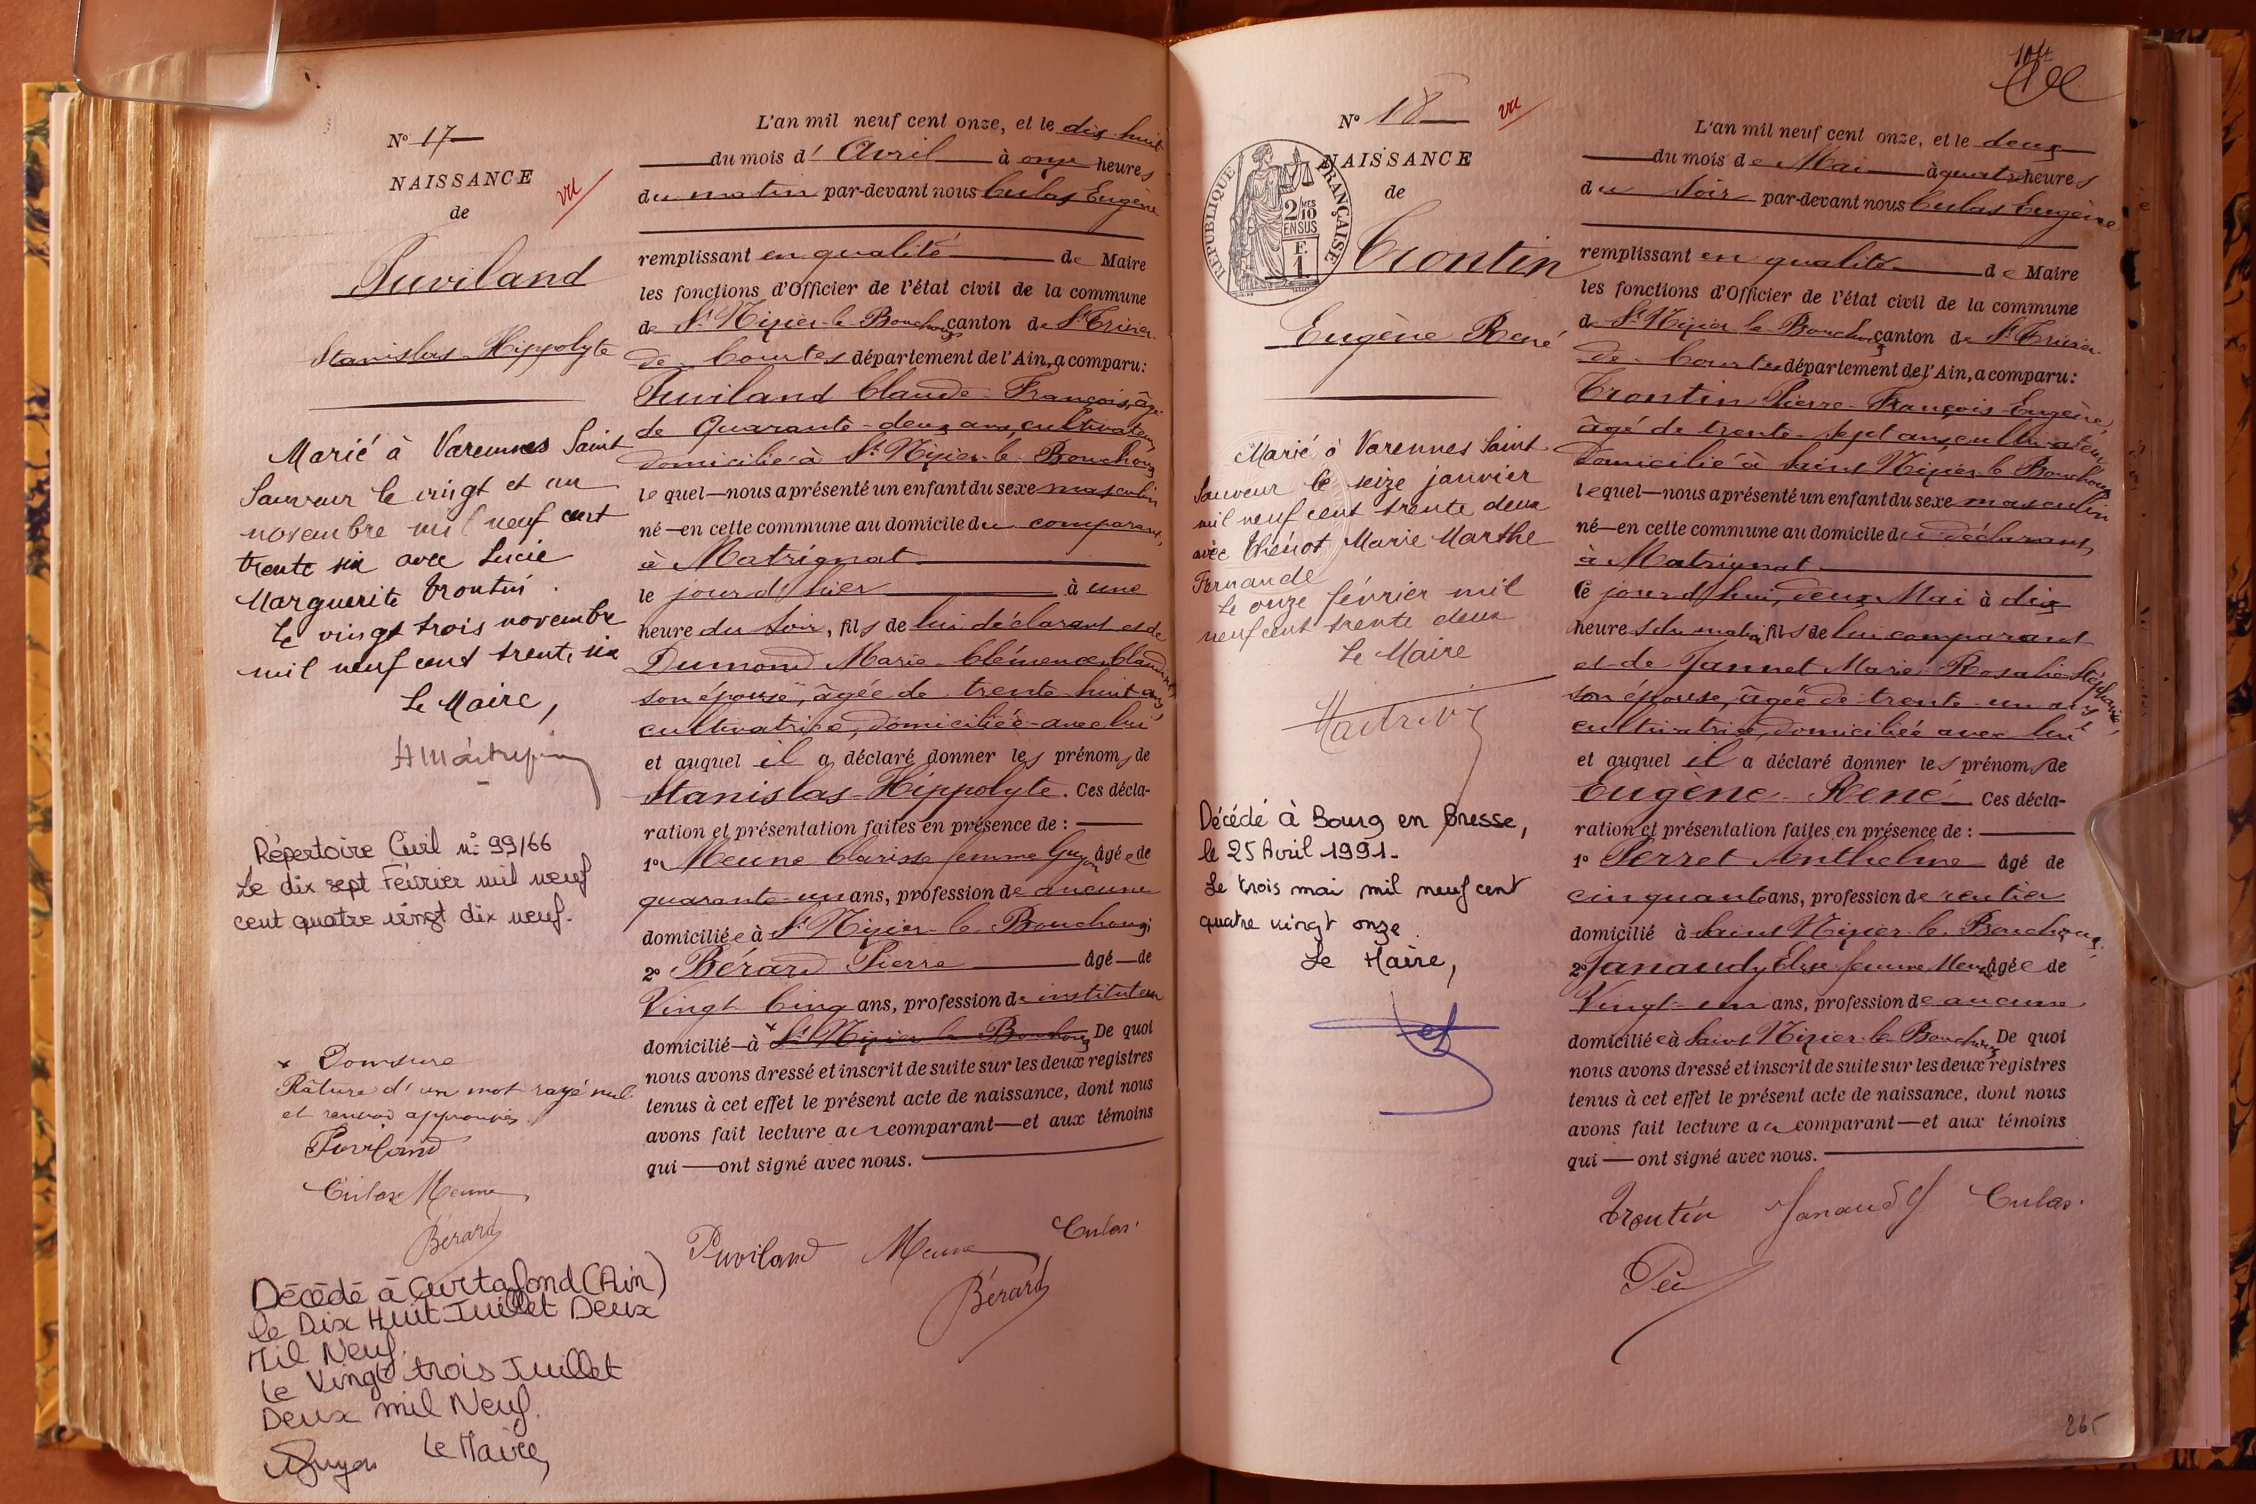 N° 17
NAISSANCE
de
vu
Puviland
Stanislas Hippolyte
Marié à Varennes Saint
Sauveur le vingt et un
novembre mil neuf cent
trente six avec Lucie
Marguerite Trontin.
Le vingt trois novembre
mil neuf cent trente six
Le Maire,
Répertoire Civil n° 99/66
Le dix sept Février mil neuf
cent quatre vingt dix neuf.
x Domsure
Râture d'un mot rayé nul
et renvoi approuvés
Puviland
Culas Meune
Bérard
Décédé à Curtafond (Ain)
le Dix Huit Juillet Deux
Mil Neuf.
Le Vingt trois Juillet
Deux mil Neuf.
Le Maire,
L'an mil neuf cent onze, et le dix huit
du mois d' Avril à onze heures
du matin par-devant nous Culas Eugène
remplissant en qualité de Maire
les fonctions d'Officier de l'état civil de la commune
de St Nizier-le-Bouchoux canton de St Trivier
de Courtes département de l'Ain, a comparu:
Puviland Claude-François, âgé
de Quarante-deux ans, cultivateur,
domicilié à St Nizier-le-Bouchoux
lequel—nous a présenté un enfant du sexe masculin
né—en cette commune au domicile du comparant,
à Matrignat
le jour d'hier à une
heure du soir, fils de lui déclarant et de
Dumond Marie-Clémence-Claudine
son épouse, âgée de trente huit ans,
cultivatrice, domiciliée avec lui
et auquel il a déclaré donner les prénoms de
Stanislas-Hippolyte. Ces décla-
ration et présentation faites en présence de :
1° Meune Clarisse femme Guyon âgée de
quarante-un ans, profession de aucune
domiciliée à St Nizier-le-Bouchoux;
2° Bérard Pierre âgé—de
Vingt Cinq ans, profession de instituteur
domicilié—à x St Nizier le Bouchoux De quoi
nous avons dressé et inscrit de suite sur les deux registres
tenus à cet effet le présent acte de naissance, dont nous
avons fait lecture au comparant—et aux témoins
qui—ont signé avec nous.
Puviland Meune Culas
Bérard
104
N° 18
vu
NAISSANCE
de
RÉPUBLIQUE FRANÇAISE
2/10
MES
EN SUS
F.
1
Trontin
Eugène René
Marié à Varennes Saint
Sauveur le seize janvier
mil neuf cent trente deux
avec Thénot Marie Marthe
Fernande
Le onze février mil
neuf cent trente deux
Le Maire
Décédé à Bourg en Bresse,
le 25 Avril 1991.
Le trois mai mil neuf cent
quatre vingt onze.
Le Maire,
L'an mil neuf cent onze, et le deux
du mois de Mai à quatre heures
du soir par-devant nous Culas Eugène
remplissant en qualité de Maire
les fonctions d'Officier de l'état civil de la commune
de St Nizier le Bouchoux canton de St Trivier
de Courtes département de l'Ain, a comparu:
Trontin Pierre-François-Eugène,
âgé de trente-sept ans, cultivateur,
domicilié à Saint Nizier le Bouchoux
lequel—nous a présenté un enfant du sexe masculin
né—en cette commune au domicile du déclarant,
à Matrignat
Ce jourd'hui, deux Mai à dix
heures du matin fils de lui comparant
et de Jannet Marie Rosalie Stéphanie,
son épouse, âgée de trente-un ans
cultivatrice, domiciliée avec lui
et auquel il a déclaré donner les prénoms de
Eugène-René Ces décla-
ration et présentation faites en présence de :
1° Perret Anthelme âgé de
cinquante ans, profession de rentier
domicilié à Saint Nizier le Bouchoux;
2° Janaudy Elise femme Meune âgée de
Vingt-un ans, profession de aucune
domiciliée à Saint Nizier-le-Bouchoux De quoi
nous avons dressé et inscrit de suite sur les deux registres
tenus à cet effet le présent acte de naissance, dont nous
avons fait lecture au comparant—et aux témoins
qui—ont signé avec nous.
Trontin Janaudy Culas
265